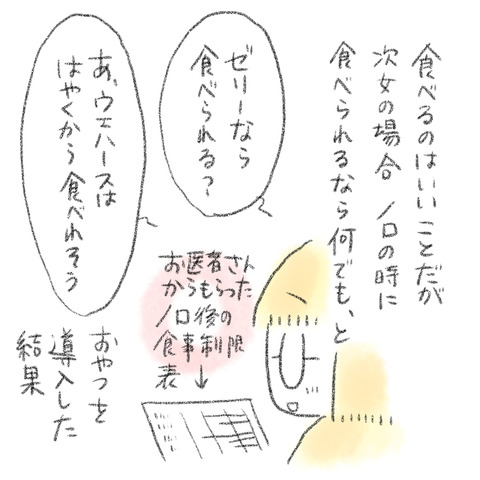 食べるのはいいことだが
次女の場合 ノロの時に
食べられるなら何でも、と
ゼリーなら
食べられる?
あ、ウエハースは
はやくから食べれそう
お医者さんた
からもらった
ノロ後の
食事制限
表↓
おやつを
導入した
結果